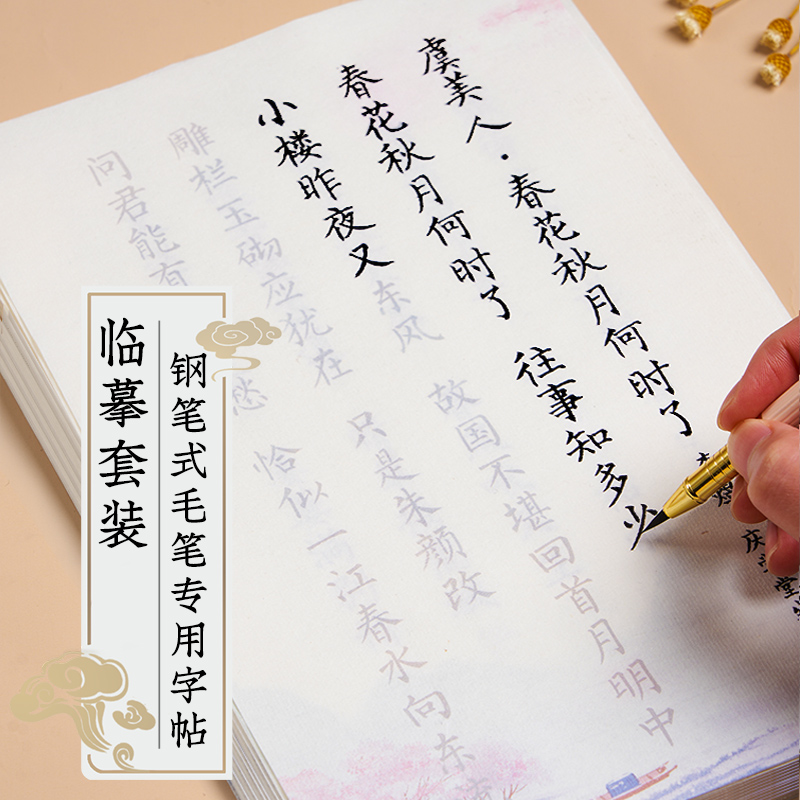 虞美人·春花秋月何时了
春花秋月何时了 往事知多少
小楼昨夜又东风 故国不堪回首月明中
雕栏玉砌应犹在 只是朱颜改
问君能有愁 恰似一江春水向东
临摹套装
钢笔式毛笔专用字帖